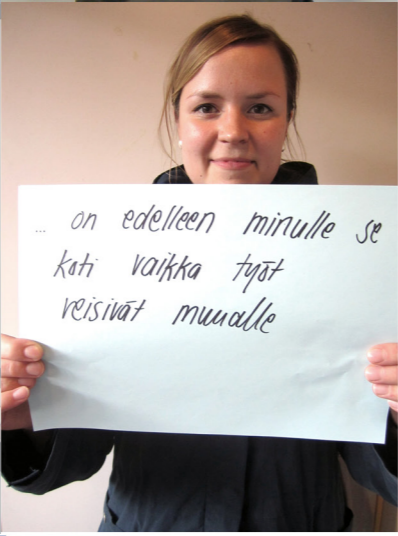 ... on edelleen minulle se
koti vaikka työt
veisivät muualle